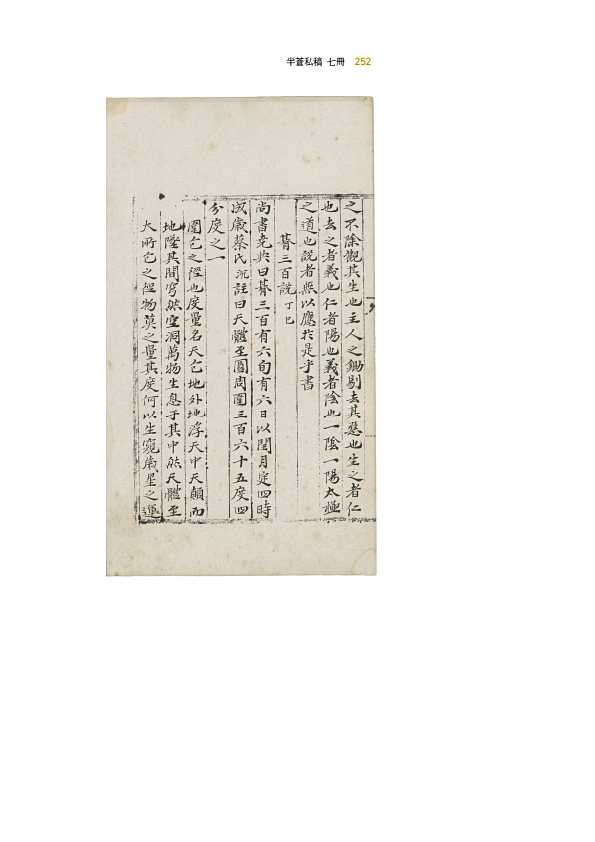 半蒼私稿 七冊 252
之不除觀其生也主人之鋤剔去其惡也生之者仁
也去之者義也仁者陽也義者陰也一陰一陽太極
之道也說者無以應於是乎書
朞三百說 丁巳
尚書堯典曰朞三百有六旬有六日以閏月定四時
成歲蔡氏沉註曰天體至圓周圍三百六十五度四
分度之一
圍包之經也度量名天包地外地浮天中天顛而
地墜其間穹然空洞萬物生息于其中然天體至
大所包之經物莫之量其度何以生窺宿星之運